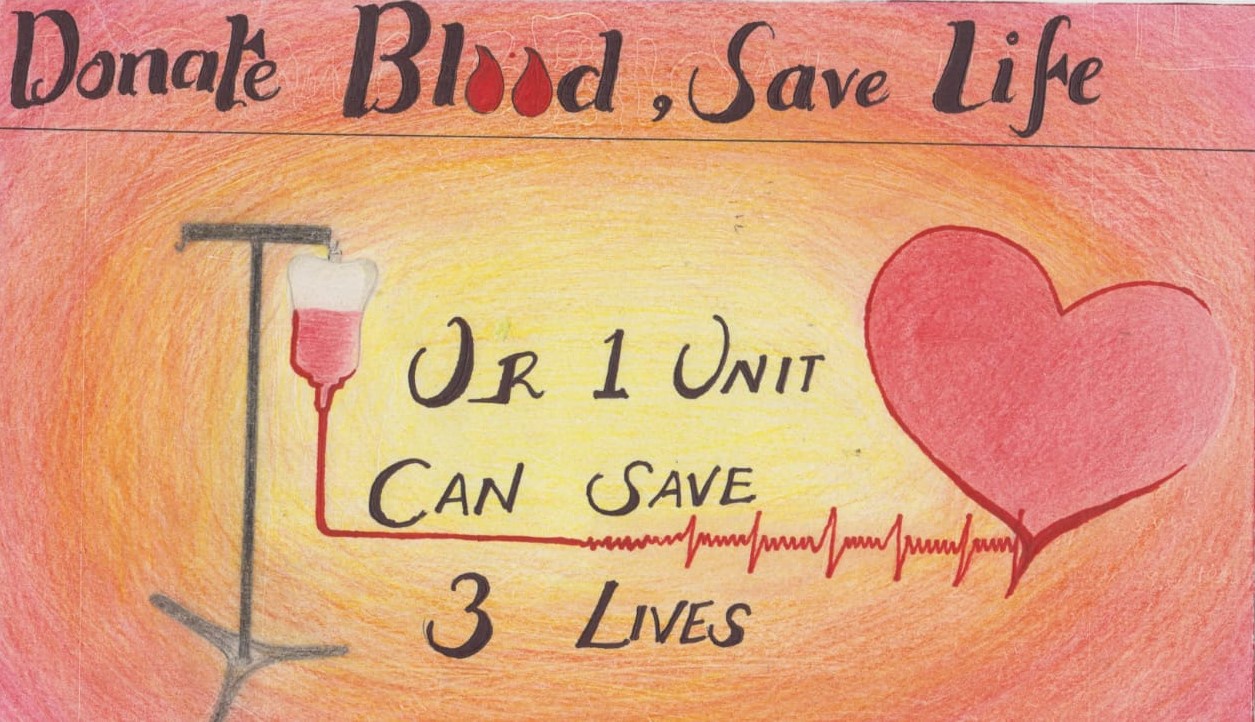 Donate Blood, Save Life
UR 1 UNIT
CAN SAVE
3 LIVES